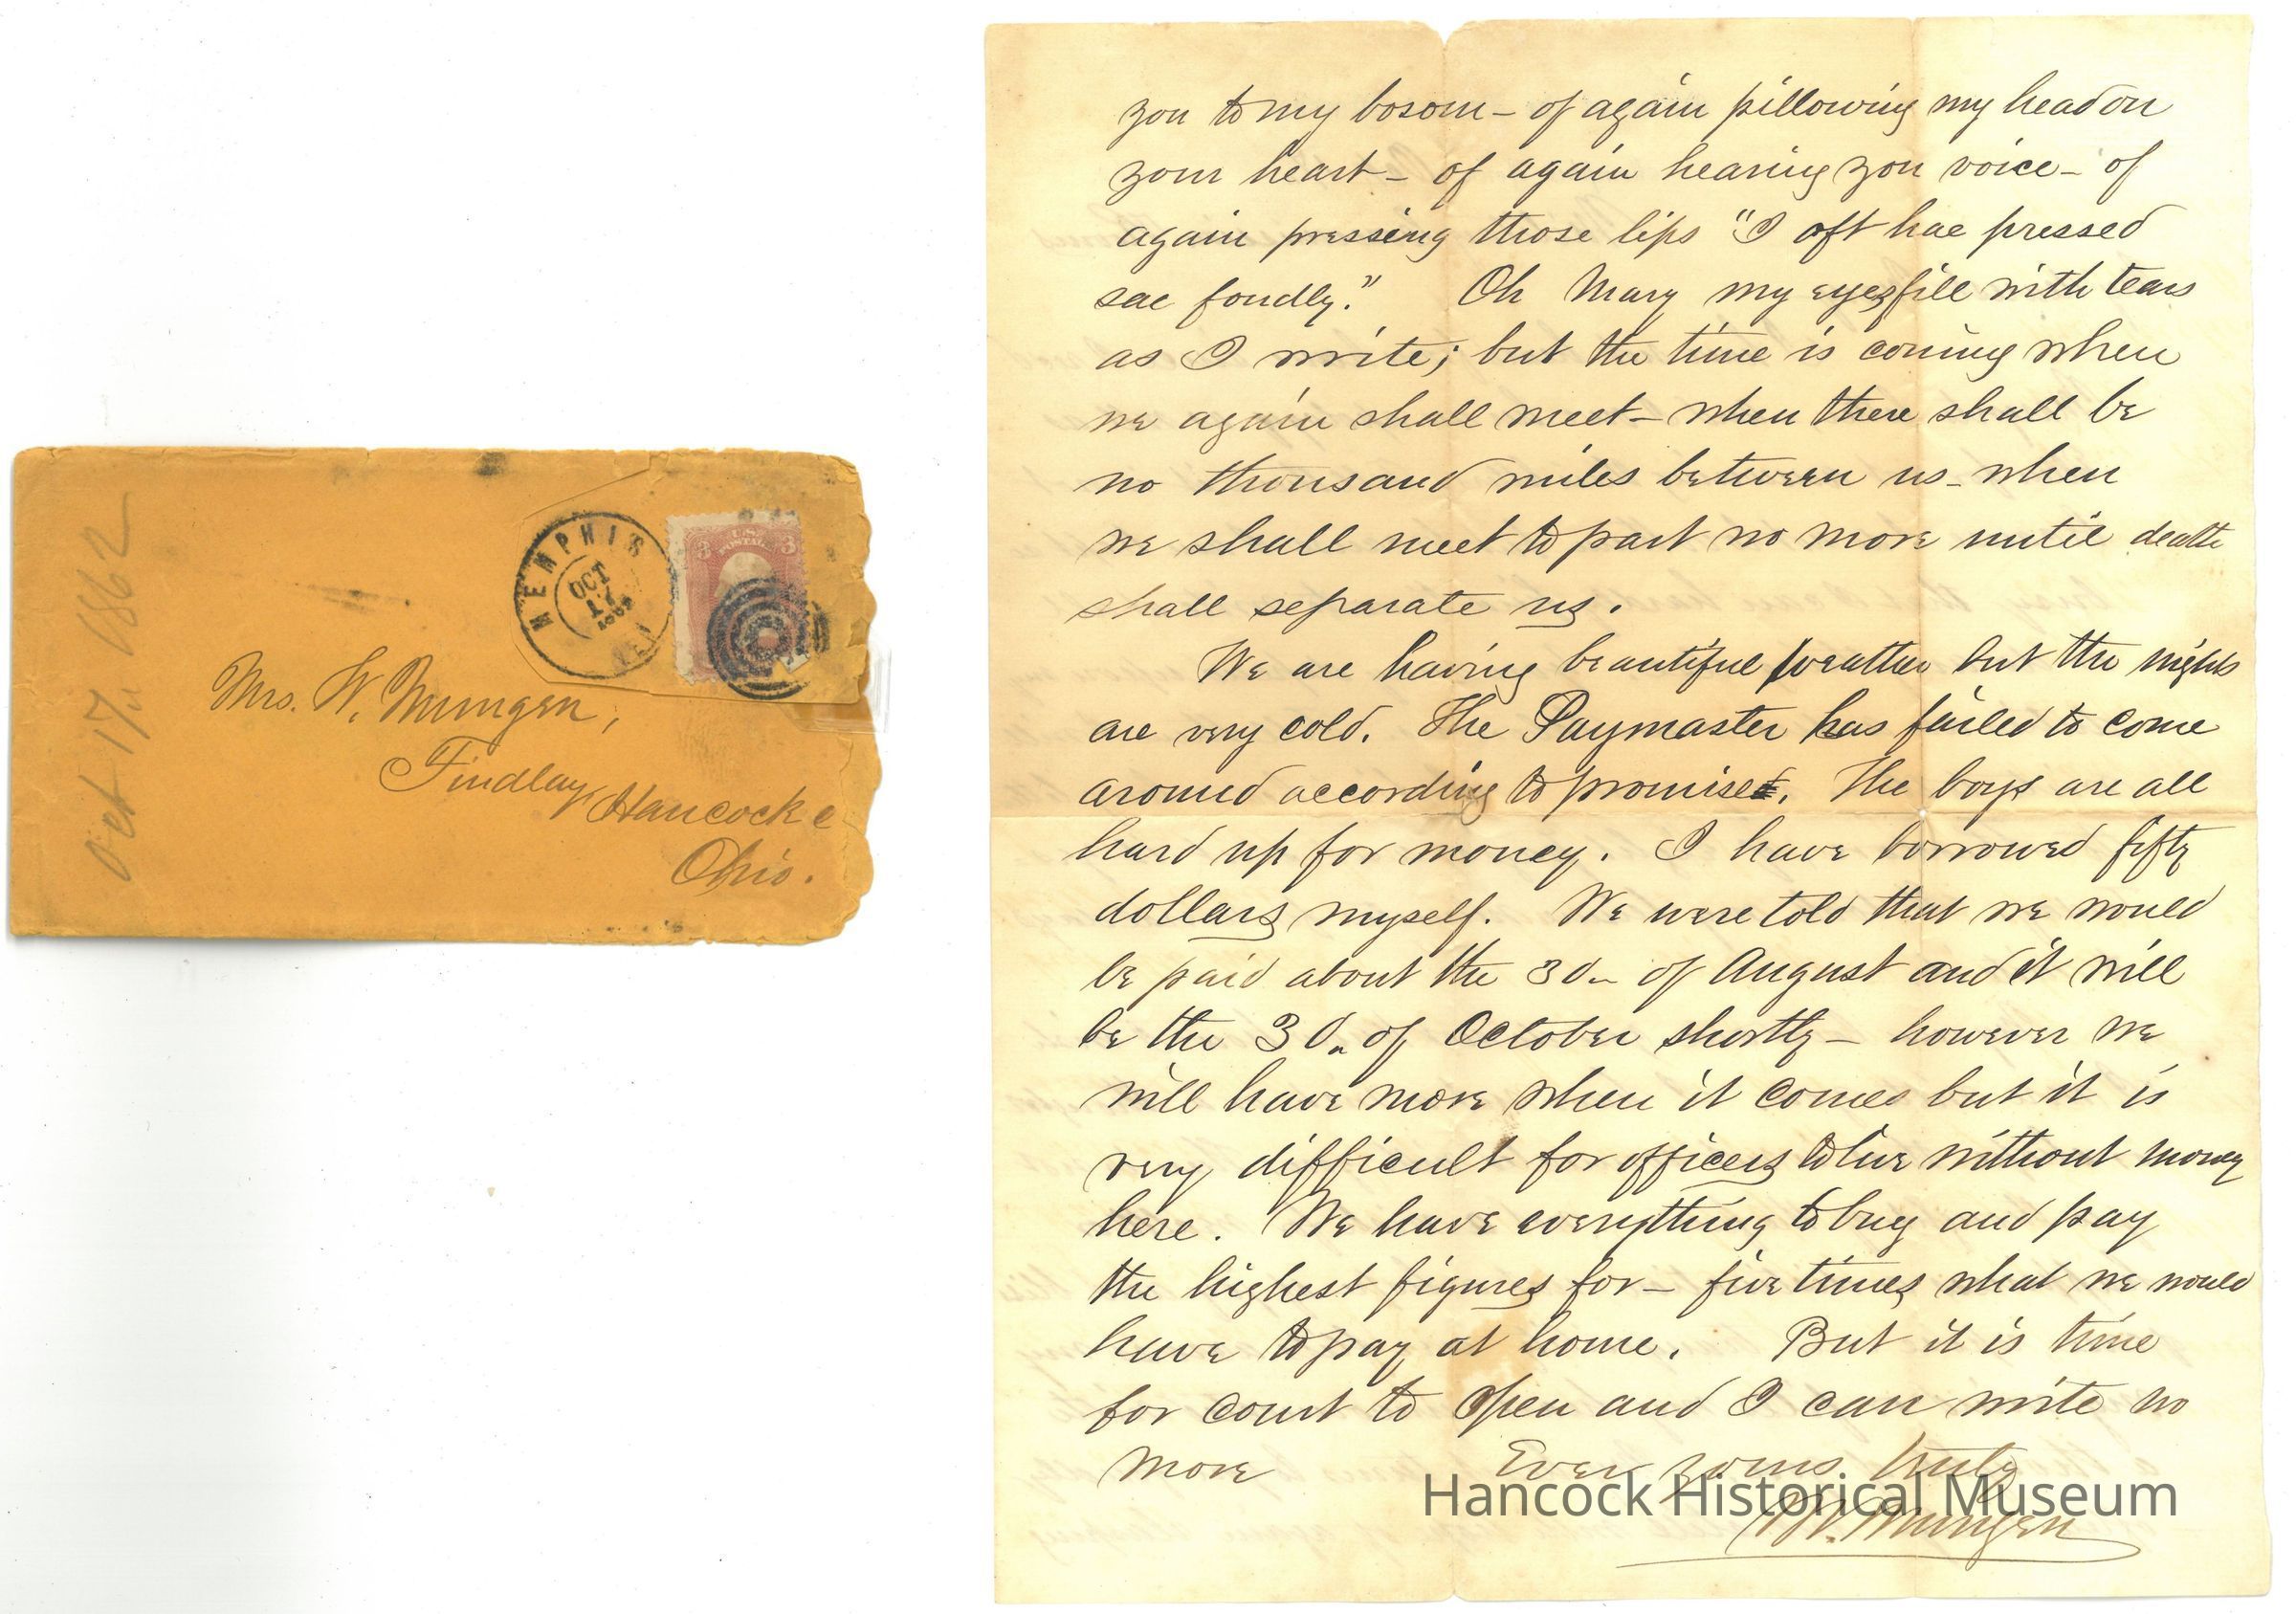 Oct 17, 1862
MEMPHIS
OCT
17
1862
U.S.
POSTAGE
3 3
Mrs. W. Mungen,
Findlay,
Hancock C
Ohio.
you to my bosom – of again pillowing my head on
your heart – of again hearing you voice – of
again pressing those lips "I oft hae pressed
sae fondly." Oh Mary my eyes fill with tears
as I write; but the time is coming when
we again shall meet – when there shall be
no thousand miles between us – when
we shall meet to part no more until death
shall separate us.
We are having beautiful weather but the nights
are very cold. The Paymaster has failed to come
around according to promise. The boys are all
hard up for money. I have borrowed fifty
dollars myself. We were told that we would
be paid about the 30 – of August and it will
be the 30 of October shortly – however we
will have more when it comes but it is
very difficult for officers to live without money
here. We have everything to buy and pay
the highest figures for – five times what we would
have to pay at home. But it is time
for court to open and I can write no
more Ever yours truly
W. Mungen
Hancock Historical Museum